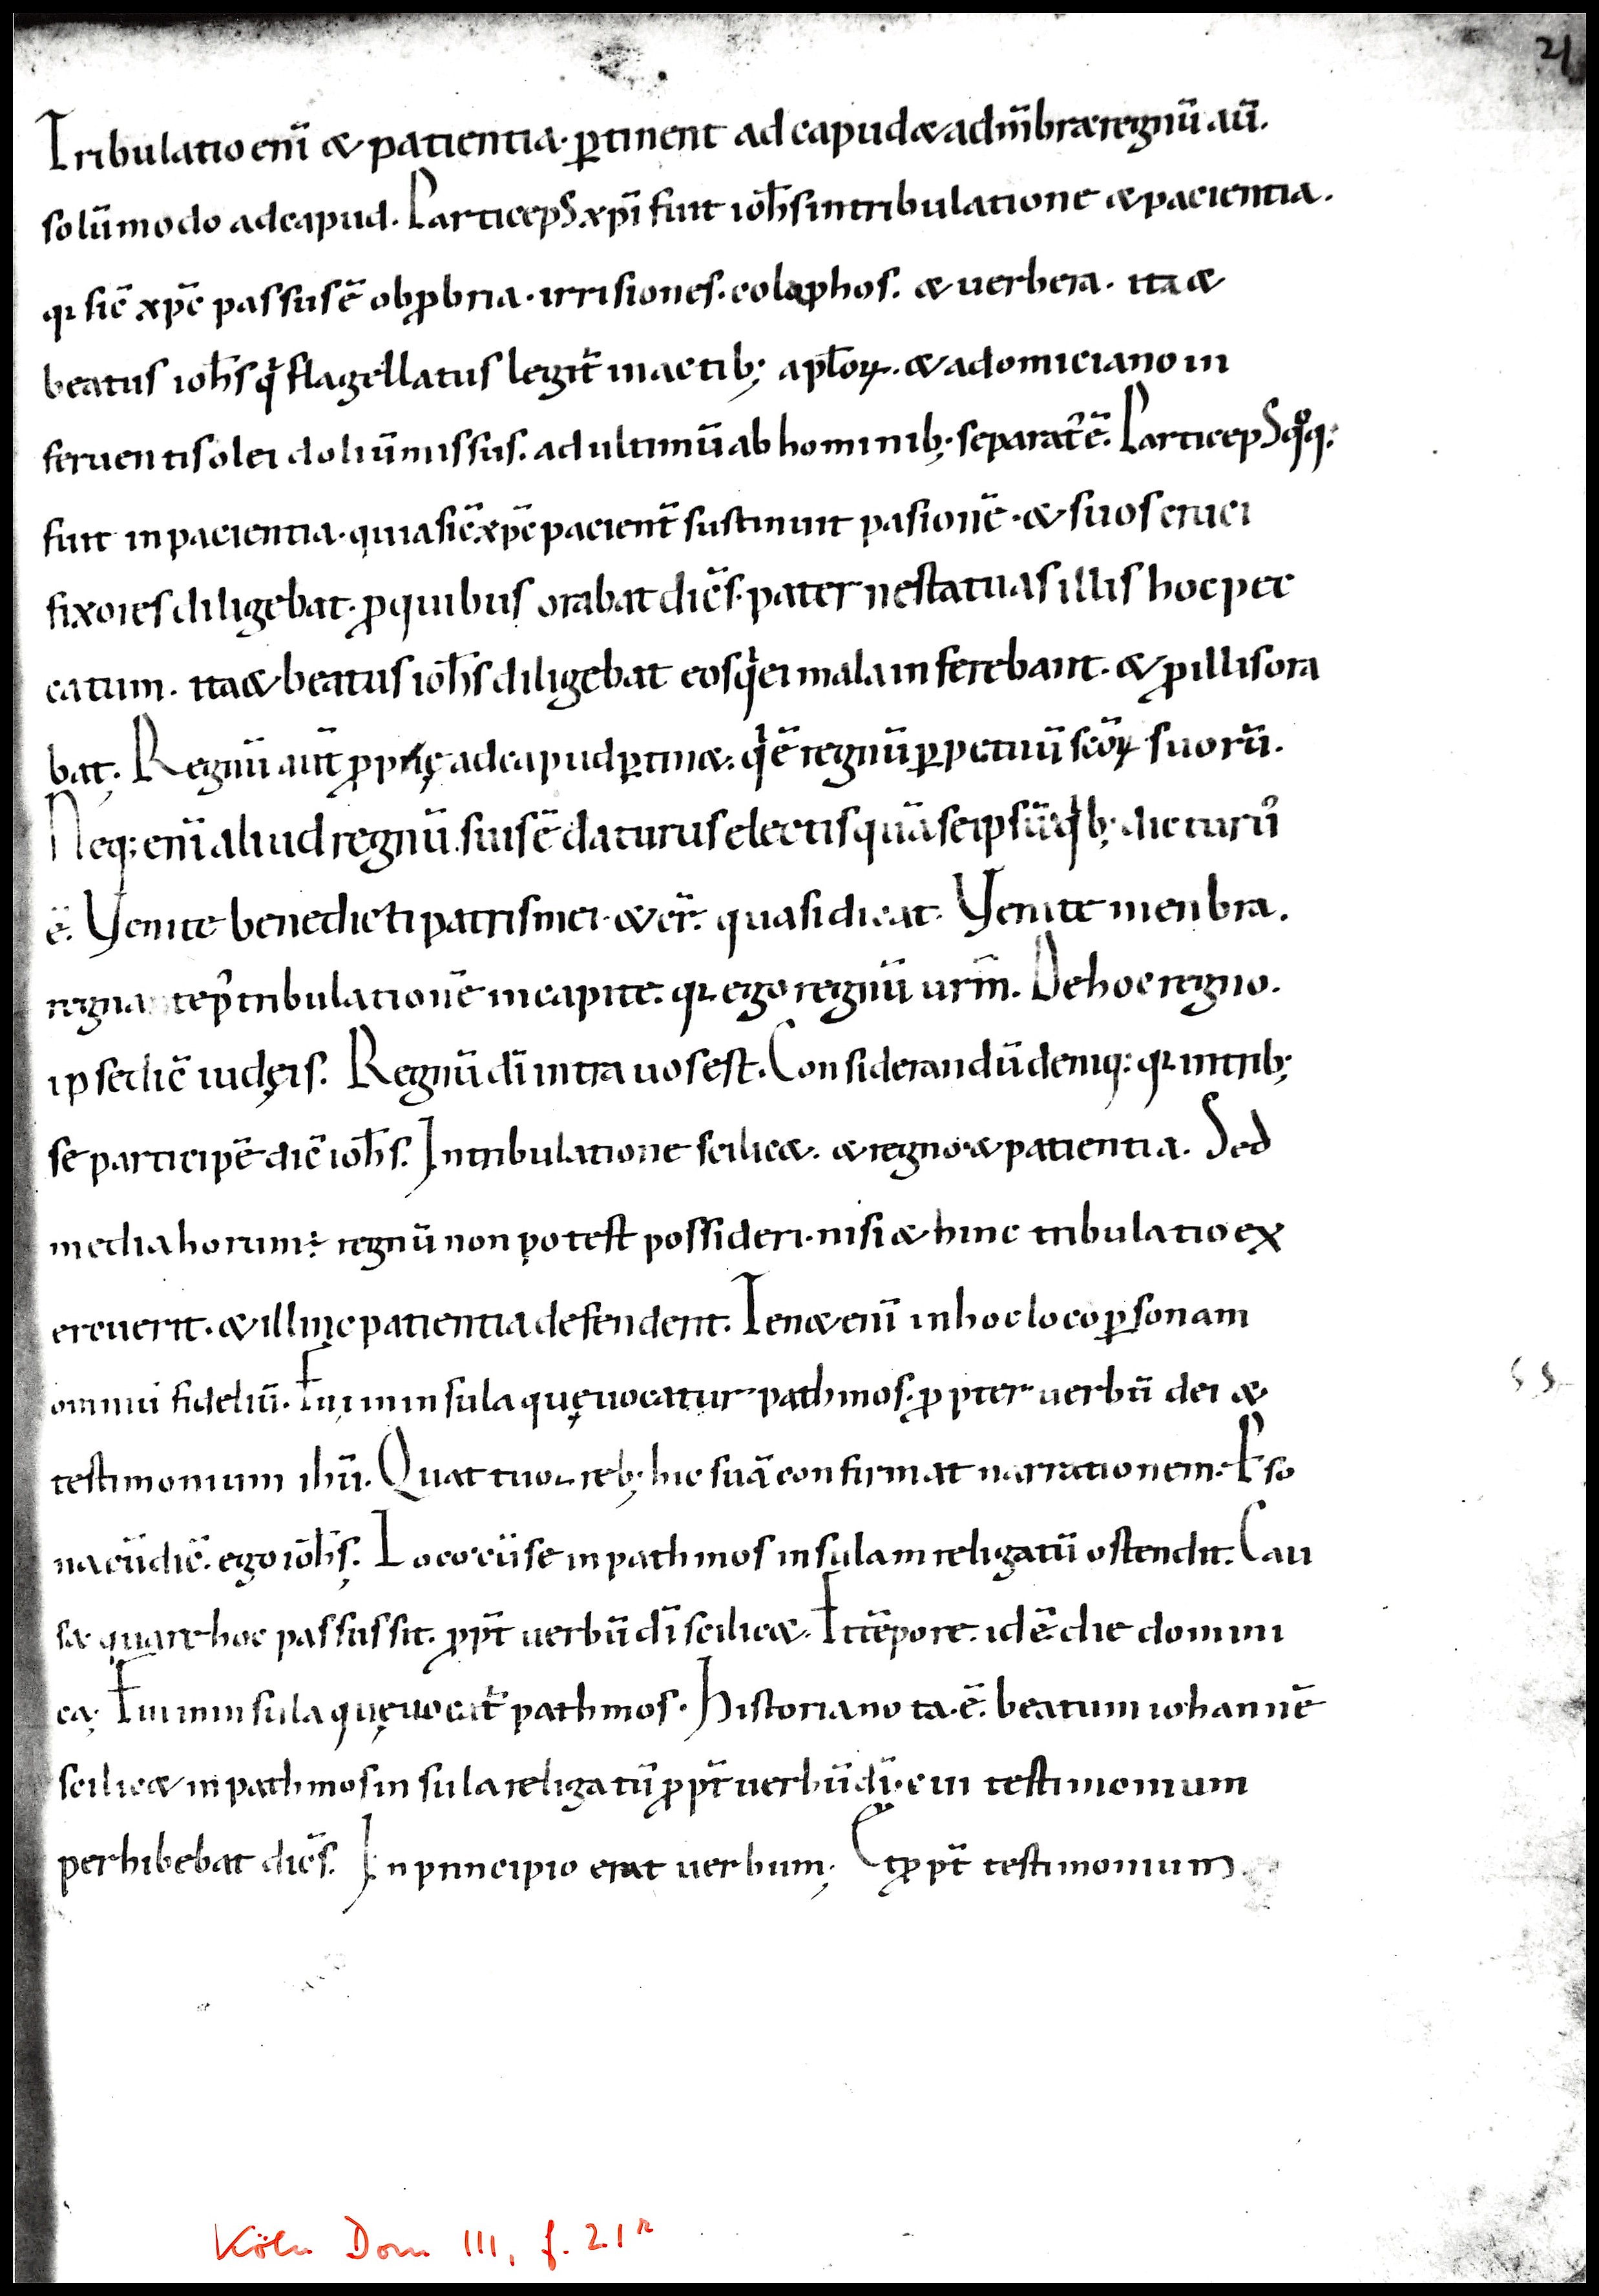 21
Tribulatio eni̅ & patientia· p̲tinent ad capud & ad m̅bra & regnu̅ au̅.
solu̅modo ad capud. ParticepS xp̅i fuit ioh̅s in tribulatione & pacientia.
qꝛ sic̅ xp̅c passus e̅ obꝓbria· irrisiones· colaphos. & uerbera· ita &
beatus ioh̅s qͥ flagellatus legit̅ in actib; apl̅oꝝ. & a domiciano in
feruentis olei doliu̅ missus. ad ultimu̅ ab hominib; separat᷒ e̅. ParticepS qͦq;
fuit in pacientia· quia sic̅ xp̅c pacient̅ sustinuit pasione̅· & suos cruci
fixores diligebat· ꝓ quibus orabat dic̅s· pater ne statuas illis hoc pec
catum· ita & beatus ioh̅s diligebat eos qͥ ei mala inferebant· & ꝓ illis ora
bat; Regnu̅ aut̅ ꝓprię ad capud ꝑtin&· qͥ e̅ regnu̅ ꝑpetuu̅ sc̅oꝝ suoru̅.
Neq; eni̅ aliud regnu̅ suis e̅ daturus electis qua̅ seipsu̅ qͥb; dicturu᷒
e̅. Venite benedicti patris mei· & cr̅. quasi dicat· Venite menbra.
regna te p᷒ tribulatione̅ in capite. qꝛ ego regnu̅ ur̅m. De hoc regno.
ipse dic̅ iudęis. Regnu̅ di̅ intra uos est. Considerandu̅ deniq; qꝛ in trib;
se participe̅ dic̅ ioh̅s. In tribulatione scilic&. & regno & patientia. Sed
media horum; regnu̅ non potest possideri· nisi & hinc tribulatio ex
ercuerit· & illinc patientia defenderit. Ten& eni̅ in hoc loco ꝑsonam
omniu̅ fideliu̅. Fui in insula quę uocatur pathmos· ꝓpter uerbu̅ dei &
testimonium ih̅u. Quattuor reb; hic sua̅ confirmat narrationem. Pso
na cu̅ dic̅. ego ioh̅s. Loco cu̅ se in pathmos insulam religatu̅ ostendit. Cau
sa quare hoc passus sit. ꝓpt̅ uerbu̅ di̅ scilic&. Et te̅pore. id e̅ die domini
ca; Fui in insula quę uocat̅ pathmos. Historia nota e̅. beatum iohanne̅
scilic& in pathmos insula religatu̅ ꝓpt̅ uerbu̅ di̅· cui testimonium
perhibebat dic̅s. In principio erat uerbum; Et ꝓpt̅ testimonium
Köln Dom III, f. 21r